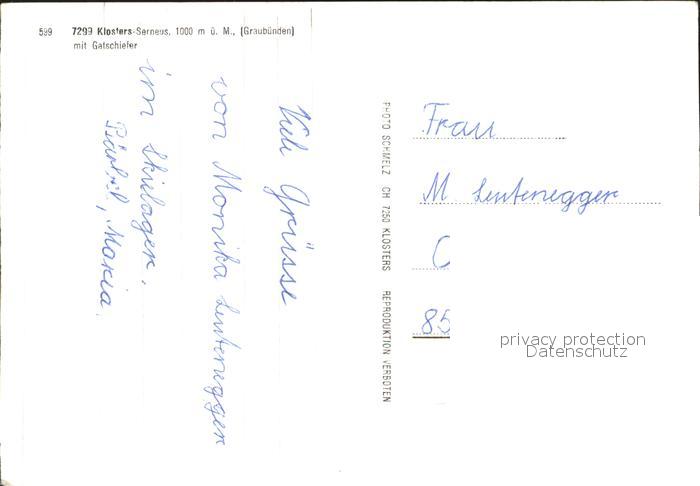 599 7299 Klosters-Serneus, 1000 m ü. M., (Graubünden)
mit Gatschiefer
Viele Grüsse
von Monika Leutenegger
im Skilager.
Maria
PHOTO SCHMELZ CH 7250 KLOSTERS REPRODUKTION VERBOTEN
Frau
M. Leutenegger
C
85
privacy protection
Datenschutz